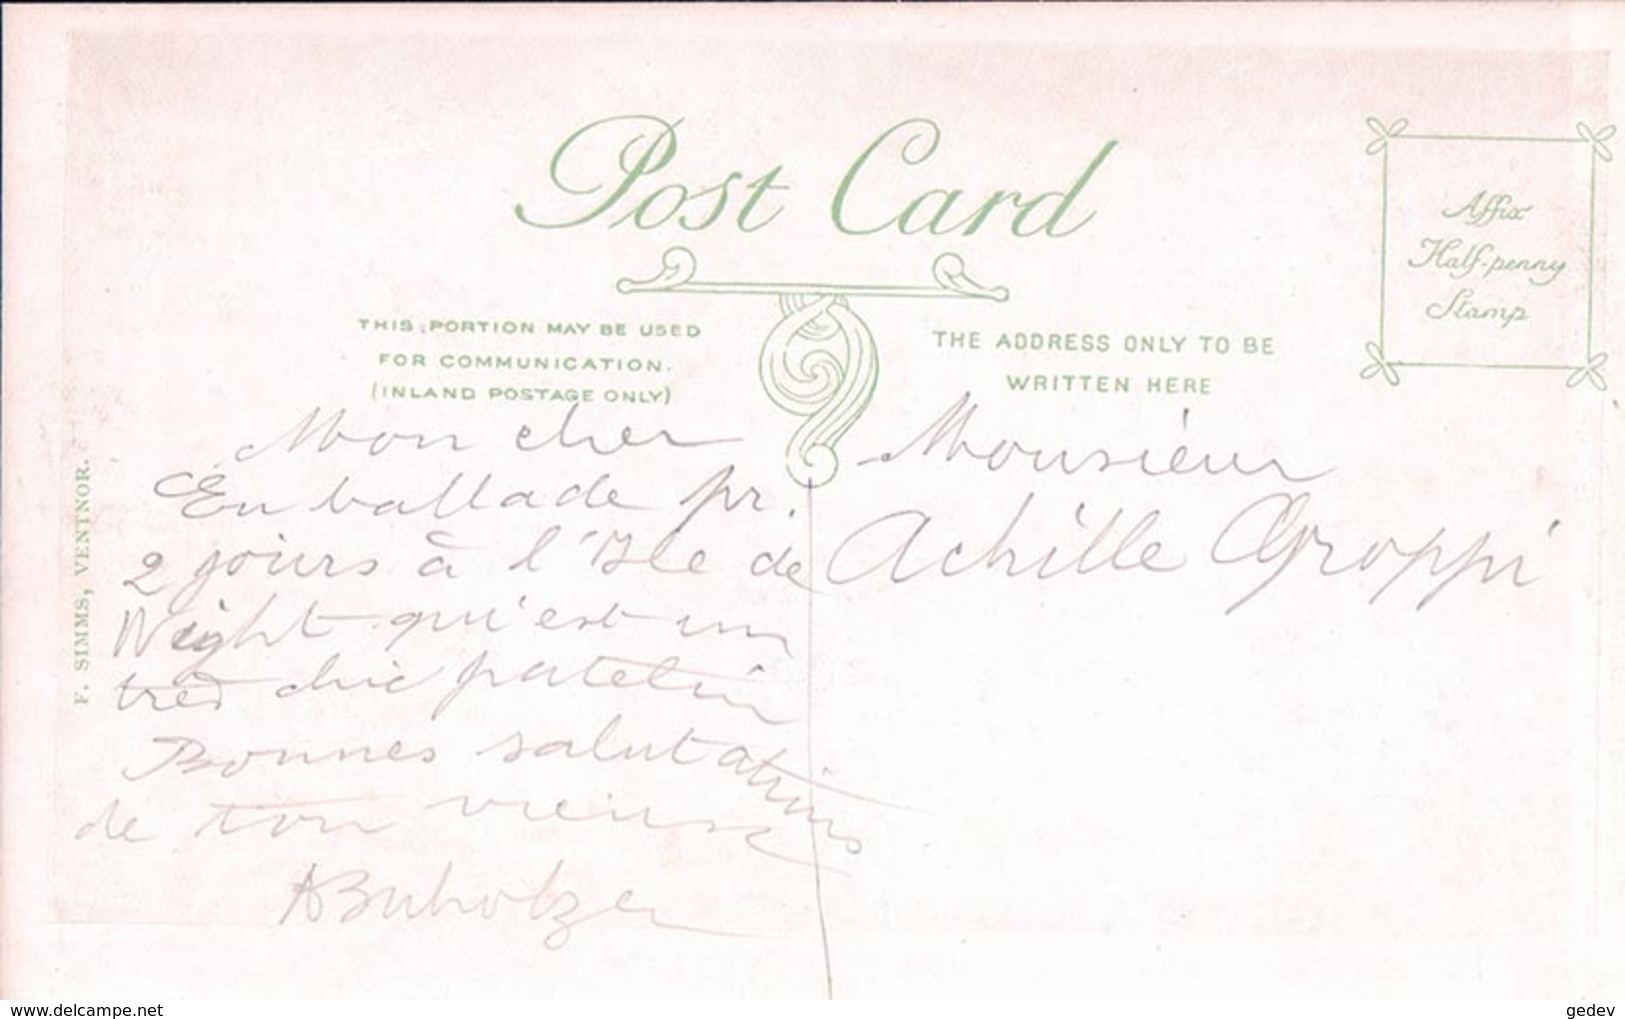 Post Card
THIS PORTION MAY BE USED
FOR COMMUNICATION.
(INLAND POSTAGE ONLY)
THE ADDRESS ONLY TO BE
WRITTEN HERE
Affix
Half-penny
Stamp
F. SIMMS, VENTNOR.
Mon cher
En ballade pr.
2 jours à l'Isle de
Wight qu'est un
très chic patelin
Bonnes salutations
de ton vieux
ABuholzer
Monsieur
Achille Groppi
www.delcampe.net
gedev